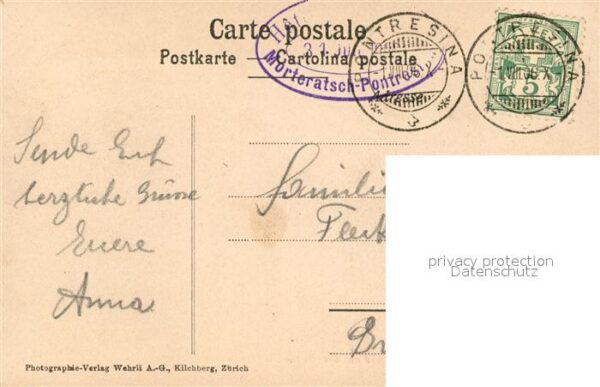 Carte postale
Postkarte — Cartolina postale
Morteratsch-Pontresina
PONTRESINA
PONTRESINA
5
Sende Euch
herzliche Grüsse
Euere
Anna
Familie
privacy protection
Datenschutz
Photographie-Verlag Wehrli A.-G., Kilchberg, Zürich